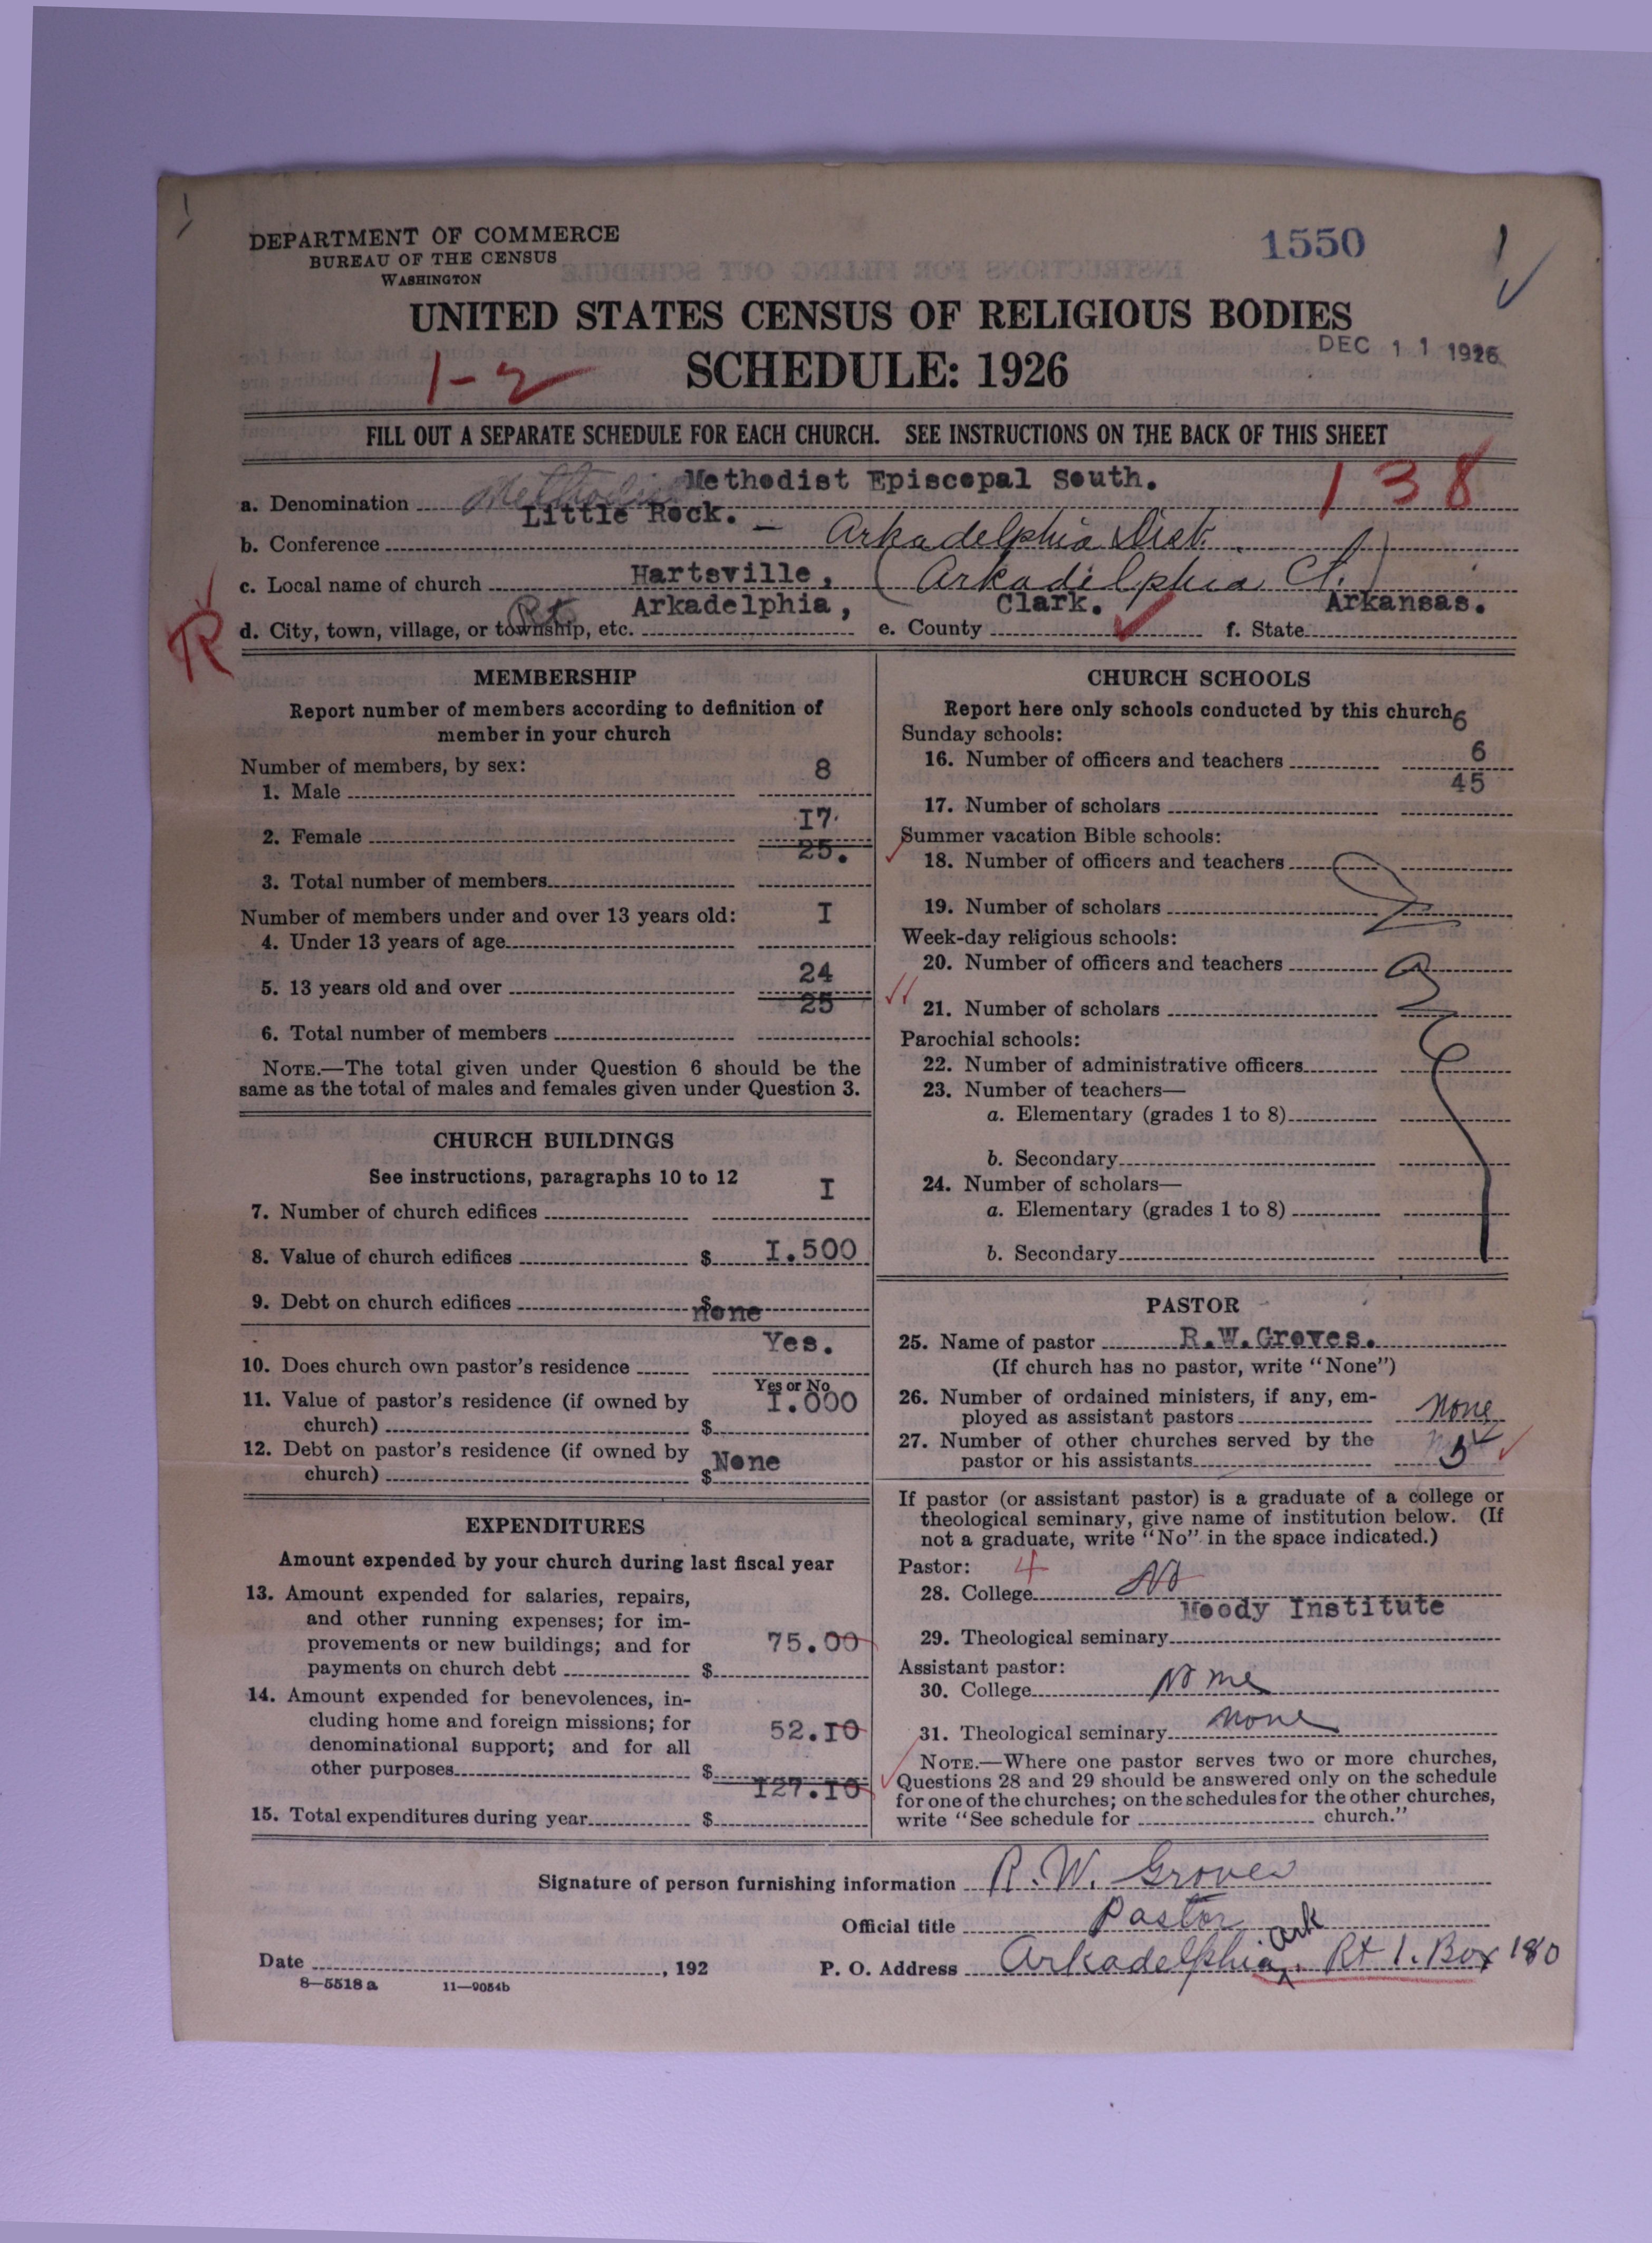 DEPARTMENT OF COMMERCE
BUREAU OF THE CENSUS
WASHINGTON
1550
UNITED STATES CENSUS OF RELIGIOUS BODIES
SCHEDULE: 1926
DEC 11 1926
1-2
FILL OUT A SEPARATE SCHEDULE FOR EACH CHURCH. SEE INSTRUCTIONS ON THE BACK OF THIS SHEET
a. Denomination Methodist Methodist Episcopal South. 138
b. Conference Little Rock. - Arkadelphia Dist.
c. Local name of church Hartsville, (Arkadelphia Ct.)
d. City, town, village, or township, etc. Rt Arkadelphia, e. County Clark. f. State Arkansas.
MEMBERSHIP
Report number of members according to definition of
member in your church
Number of members, by sex:
1. Male 8
2. Female 17
3. Total number of members 25.
Number of members under and over 13 years old:
4. Under 13 years of age I
5. 13 years old and over 24
6. Total number of members 25
NOTE.—The total given under Question 6 should be the
same as the total of males and females given under Question 3.
CHURCH BUILDINGS
See instructions, paragraphs 10 to 12
7. Number of church edifices I
8. Value of church edifices $ I.500
9. Debt on church edifices $ none
10. Does church own pastor's residence Yes.
Yes or No
11. Value of pastor's residence (if owned by
church) $ I.000
12. Debt on pastor's residence (if owned by
church) $ None
EXPENDITURES
Amount expended by your church during last fiscal year
13. Amount expended for salaries, repairs,
and other running expenses; for im-
provements or new buildings; and for
payments on church debt $ 75.00
14. Amount expended for benevolences, in-
cluding home and foreign missions; for
denominational support; and for all
other purposes $ 52.I0
15. Total expenditures during year $ I27.I0
CHURCH SCHOOLS
Report here only schools conducted by this church
6
Sunday schools:
16. Number of officers and teachers 6
17. Number of scholars 45
Summer vacation Bible schools:
18. Number of officers and teachers
19. Number of scholars
Week-day religious schools:
20. Number of officers and teachers
21. Number of scholars
Parochial schools:
22. Number of administrative officers
23. Number of teachers—
a. Elementary (grades 1 to 8)
b. Secondary
24. Number of scholars—
a. Elementary (grades 1 to 8)
b. Secondary
PASTOR
25. Name of pastor R.W.Groves.
(If church has no pastor, write "None")
26. Number of ordained ministers, if any, em-
ployed as assistant pastors None
27. Number of other churches served by the
pastor or his assistants 5
If pastor (or assistant pastor) is a graduate of a college or
theological seminary, give name of institution below. (If
not a graduate, write "No" in the space indicated.)
Pastor: 4
28. College No
29. Theological seminary Moody Institute
Assistant pastor:
30. College None
31. Theological seminary None
NOTE.—Where one pastor serves two or more churches,
Questions 28 and 29 should be answered only on the schedule
for one of the churches; on the schedules for the other churches,
write "See schedule for church."
Signature of person furnishing information R. W. Groves
Official title Pastor
Date , 192
P. O. Address Arkadelphia, Ark. Rt 1. Box 180
8—5518 a 11—9054b